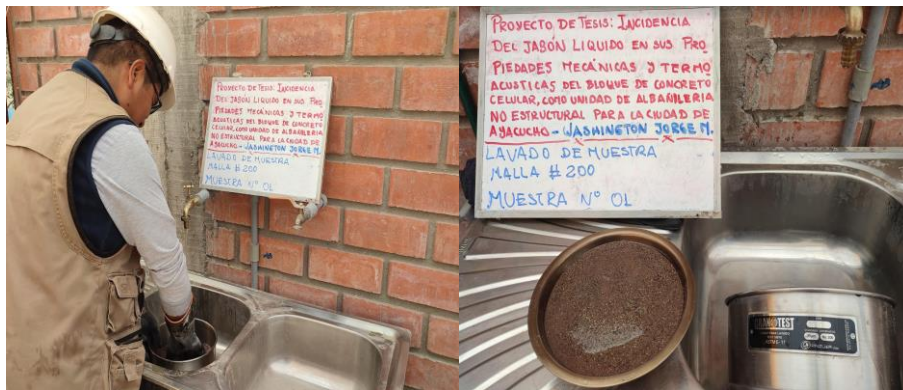 PROYECTO DE TESIS: INCIDENCIA
DEL JABÓN LIQUIDO EN SUS PRO
PIEDADES MECÁNICAS Y TERMO
ACUSTICAS DEL BLOQUE DE CONCRETO
CELULAR, COMO UNIDAD DE ALBAÑILERIA
NO ESTRUCTURAL PARA LA CIUDAD DE
AYACUCHO - WASHINGTON JORGE M.
LAVADO DE MUESTRA
MALLA #200
MUESTRA N° 01
PROYECTO DE TESIS: INCIDENCIA
DEL JABÓN LIQUIDO EN SUS PRO
PIEDADES MECÁNICAS Y TERMO
ACUSTICAS DEL BLOQUE DE CONCRETO
CELULAR, COMO UNIDAD DE ALBAÑILERIA
NO ESTRUCTURAL PARA LA CIUDAD DE
AYACUCHO - WASHINGTON JORGE M.
LAVADO DE MUESTRA
MALLA #200
MUESTRA N° 01